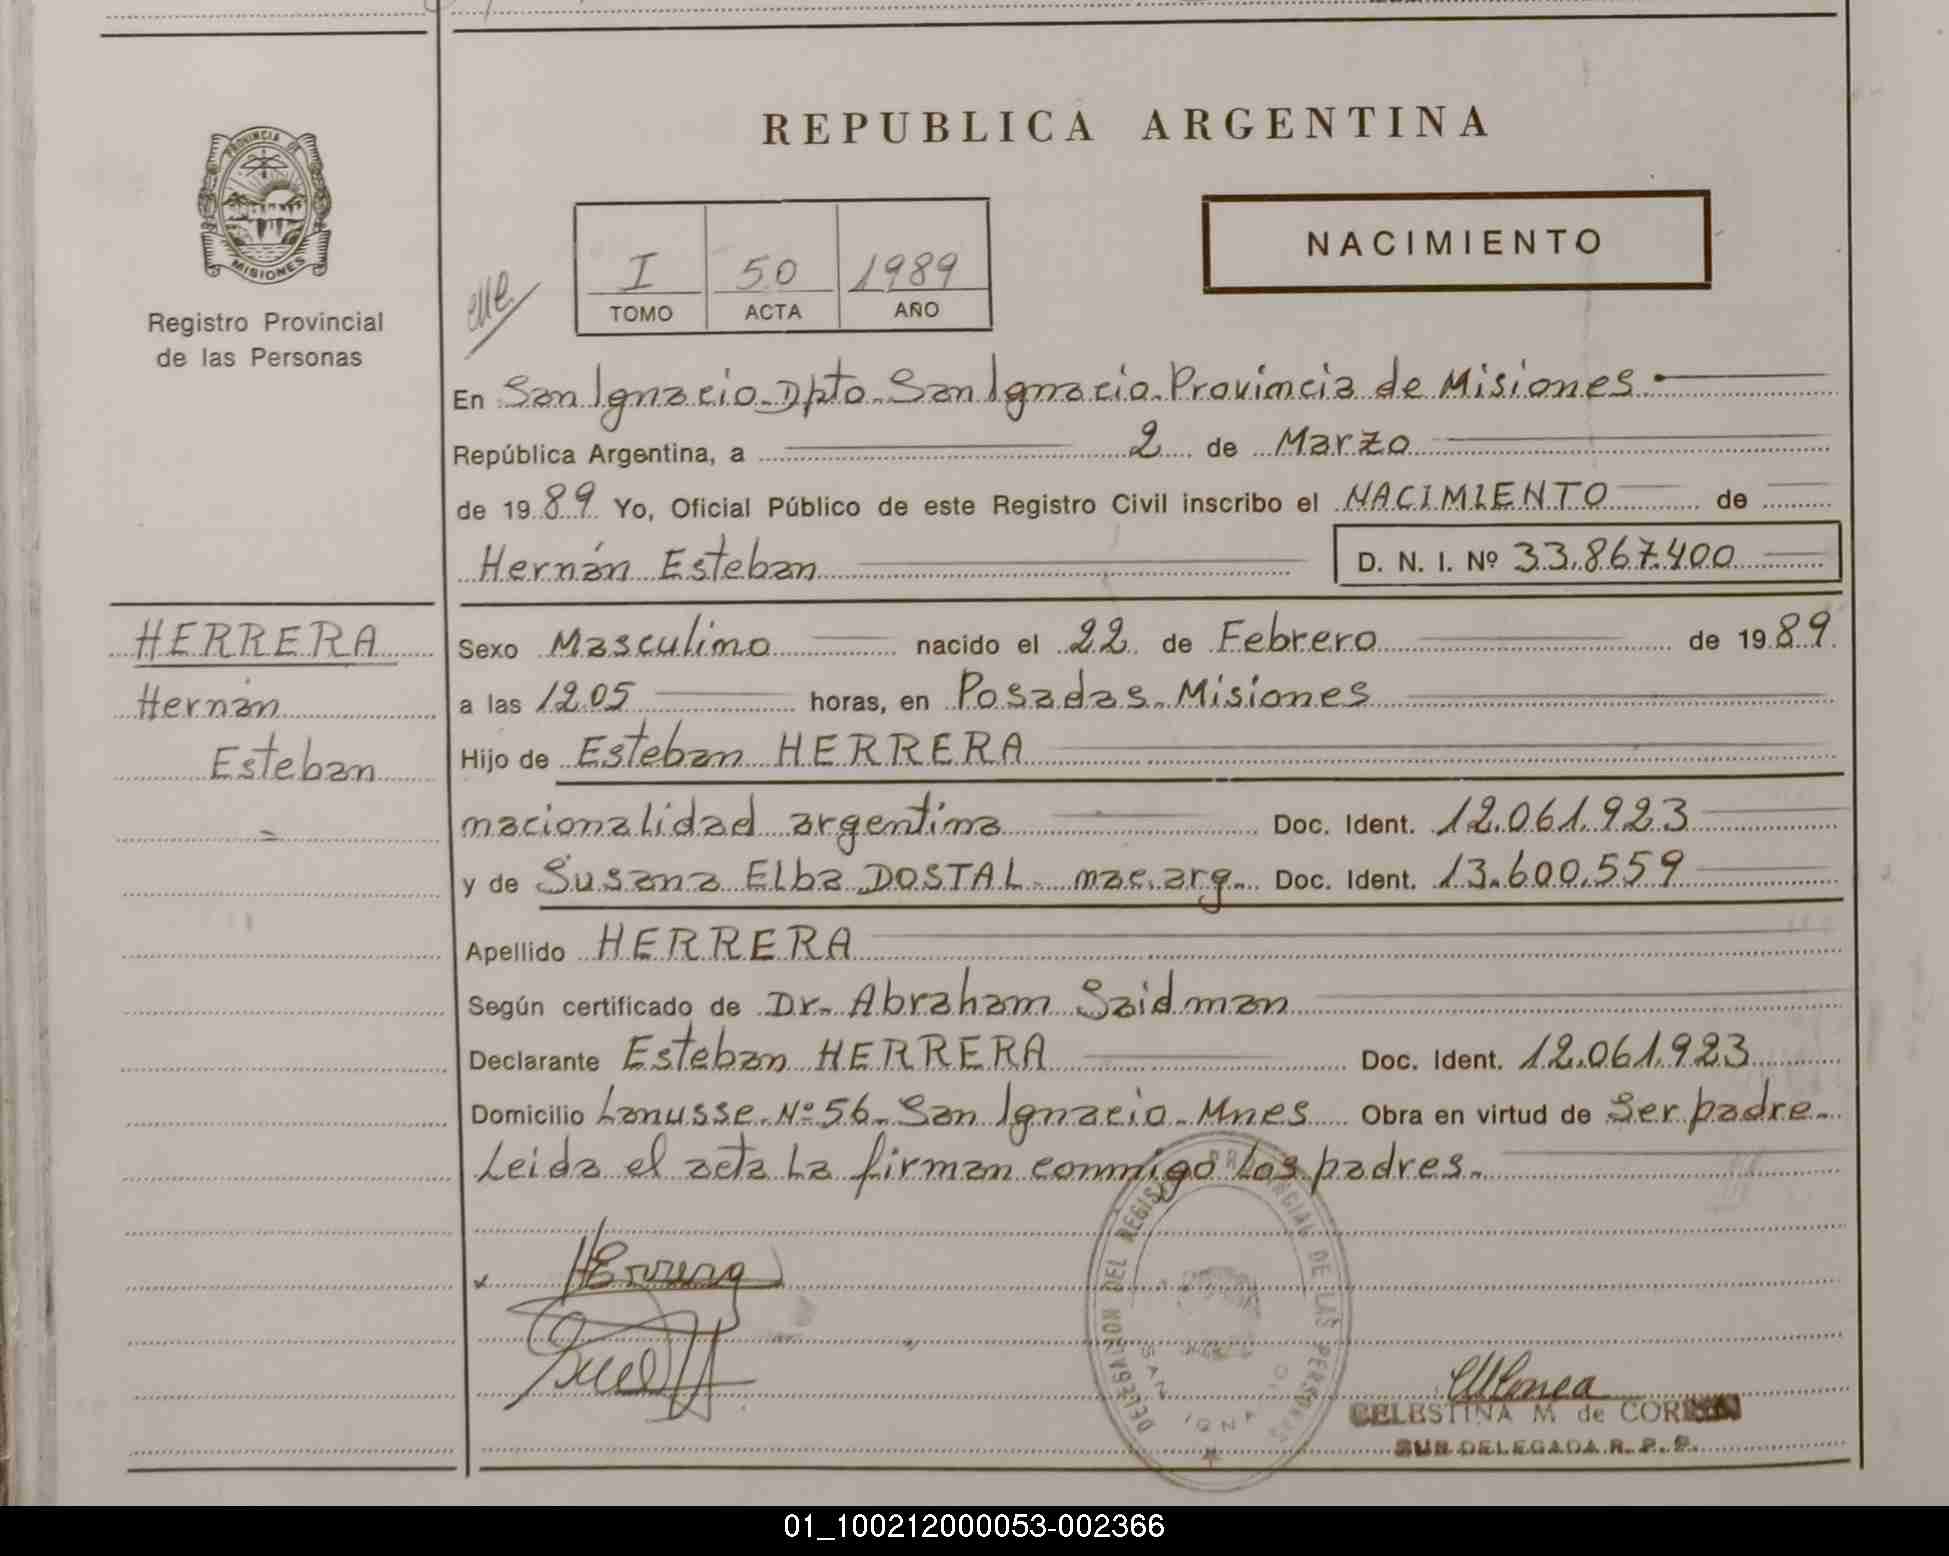 PROVINCIA DE
MISIONES
Registro Provincial
de las Personas
REPUBLICA ARGENTINA
NACIMIENTO
I 50 1989
TOMO ACTA AÑO
En San Ignacio. Dpto. San Ignacio. Provincia de Misiones.
República Argentina, a 2 de Marzo
de 1989 Yo, Oficial Público de este Registro Civil inscribo el NACIMIENTO de
Hernán Esteban D. N. I. Nº 33.867.400
HERRERA
Hernán
Esteban
Sexo Masculino nacido el 22 de Febrero de 1989.
a las 12.05 horas, en Posadas. Misiones
Hijo de Esteban HERRERA
nacionalidad argentina Doc. Ident. 12.061.923
y de Susana Elba DOSTAL. nac. arg. Doc. Ident. 13.600.559
Apellido HERRERA
Según certificado de Dr. Abraham Saidman
Declarante Esteban HERRERA Doc. Ident. 12.061.923
Domicilio Lanusse. Nº 56. San Ignacio. Mnes Obra en virtud de Ser padre.
Leida el acta la firman conmigo los padres.
HErrera
DELEGACION DEL REGISTRO PROVINCIAL DE LAS PERSONAS
SAN IGNACIO
CELESTINA M de
SUB DELEGADA R. P. P.
01_100212000053-002366